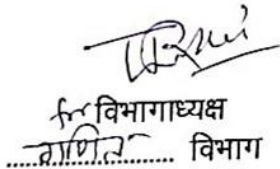 for विभागाध्यक्ष
गणित विभाग